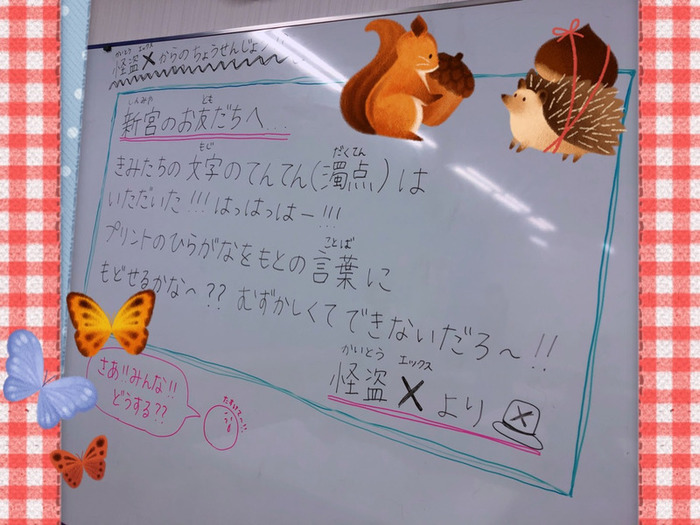 怪盗Xからのちょうせんじょう
かいとう エックス
新宮のお友だちへ...
しんみや とも
きみたちの文字のてんてん(濁点)は
もじ だくてん
いただいた!!!はっはっはー!!!
プリントのひらがなをもとの言葉に
ことば
もどせるかな〜??むずかしくてできないだろ〜!!
かいとう エックス
怪盗Xより
X
さあ!!みんな!!
どうする??
たすけて〜!!